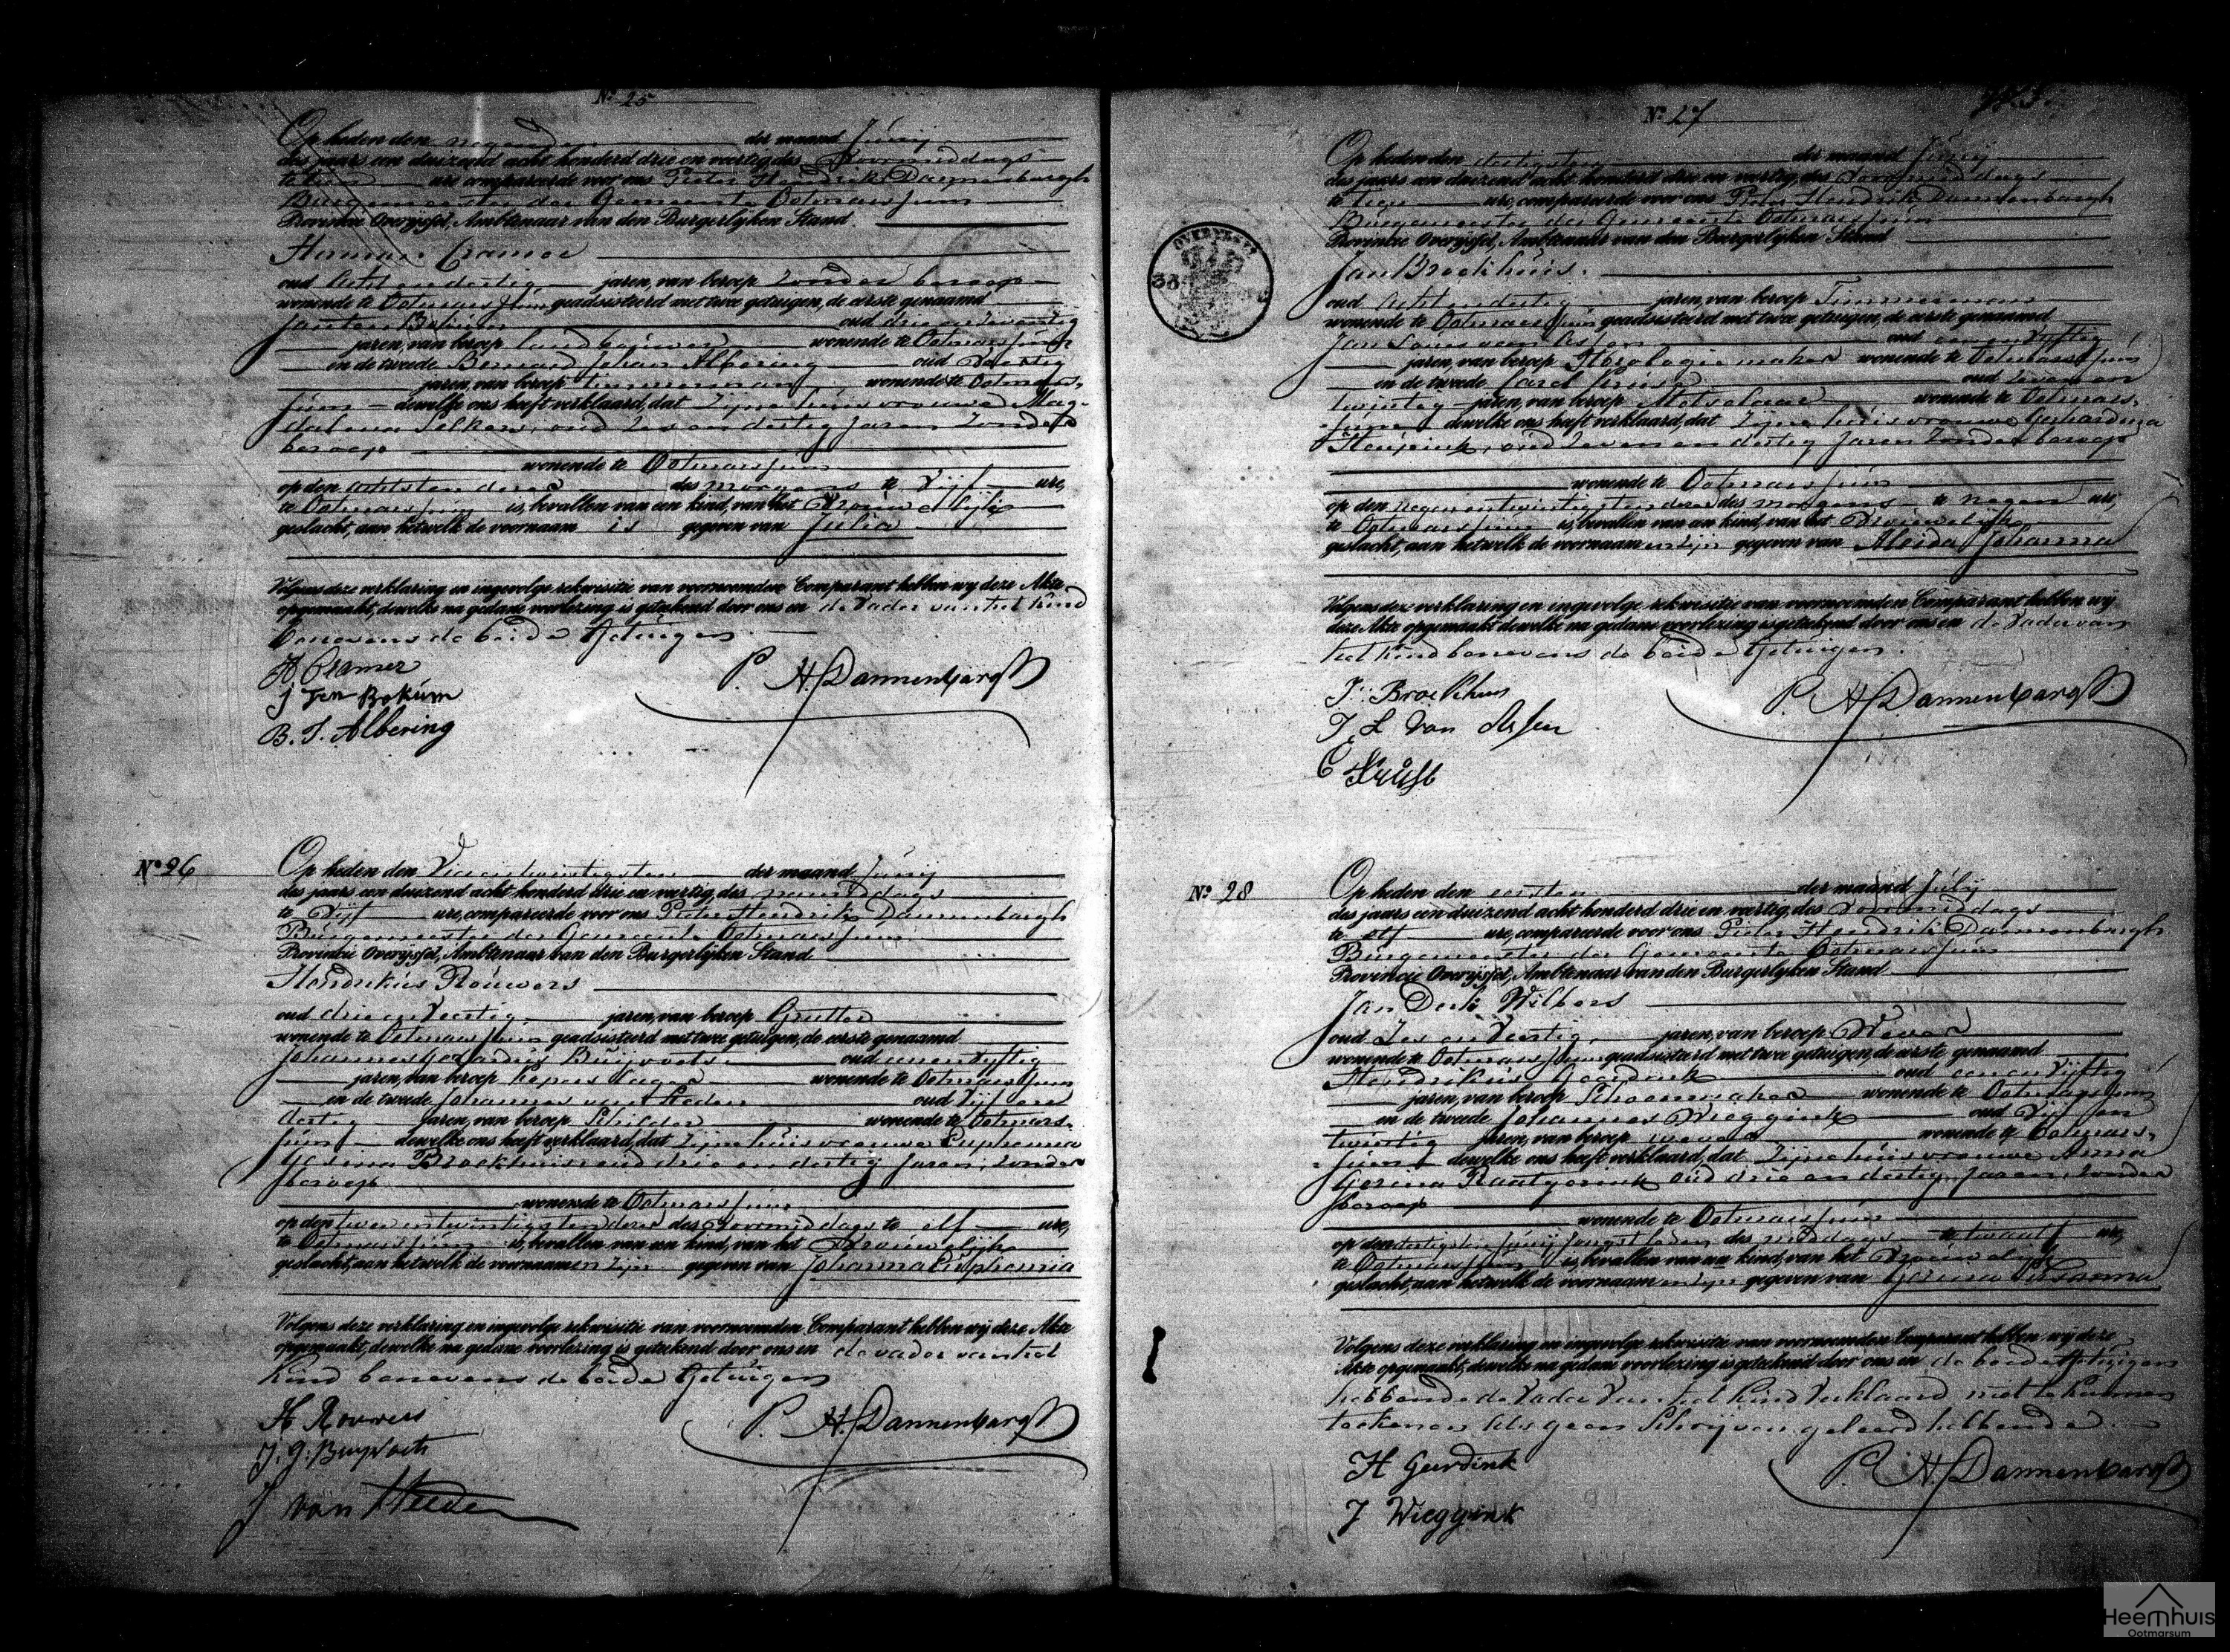 N.º 25
Op heden den negenden der maand Junij
des jaars een duizend acht honderd drie en veertig des voormiddags
te tien ure compareerde voor ons Pieter Hendrik Dannenbargh
Burgemeester der Gemeente Ootmarssum
Provincie Overijssel, Ambtenaar van den Burgerlyken Stand
Herman Cramer
oud acht en dertig jaren, van beroep zonder beroep
wonende te Ootmarssum geadsisteerd met twee getuigen, de eerste genaamd
Jan ten Bokum oud drie en
jaren, van beroep landbouwer wonende te Ootmarssum
en de tweede Bernard Johan Albering oud veertig
jaren, van beroep Timmerman wonende te Ootmars-
sum dewelke ons heeft verklaard, dat zijne huisvrouwe Mag-
dalena oud zes en dertig jaren zonder
beroep
wonende te Ootmarssum
op den achtsten dezer des morgens te vijf ure,
te Ootmarssum is bevallen van een kind, van het vrouwelijk
geslacht, aan hetwelk de voornaam is gegeven van Julia
Volgens deze verklaring en ingevolge rekwisitie van voornoemden Comparant hebben wy deze Akte
opgemaakt, dewelke na gedane voorlezing is getekend door ons en de Vader van het kind
benevens de beide Getuigen
H Cramer
J Ten Bokum
B. J. Albering
P. H. Dannenbargh
N.º 26
Op heden den vier en twintigsten der maand Junij
des jaars een duizend acht honderd drie en veertig, des namiddags
te vijf ure, compareerde voor ons Pieter Hendrik Dannenbargh
Burgemeester der Gemeente Ootmarssum
Provincie Overijssel, Ambtenaar van den Burgerlijken Stand
Hendrikus Rouwers
oud drie en veertig jaren, van beroep Grutter
wonende te Ootmarssum geadsisteerd met twee getuigen, de eerste genaamd
Johannes Gerardus Buijvoets oud een en vyftig
jaren, van beroep Koperslager wonende te Ootmarssum
en de tweede Johannes van Heeden oud vijf en
dertig jaren, van beroep Schilder wonende te Ootmars-
sum dewelke ons heeft verklaard, dat zijne huisvrouwe Euphemia
Gesina Broekhuis oud drie en dertig jaren, zonder
beroep
wonende te Ootmarssum
op den twee en twintigsten dezer des voormiddags te elf ure,
te Ootmarssum is bevallen van een kind, van het vrouwelijk
geslacht, aan hetwelk de voornaamen zijn gegeven van Johanna Euphemia
Volgens deze verklaring en ingevolge rekwisitie van voornoemden Comparant hebben wij deze Akte
opgemaakt, dewelke na gedane voorlezing is getekend door ons en de vader van het
kind benevens de beide Getuigen
H Rouwers
J. G. Buyvoets
J van Heeden
P. H. Dannenbargh
N.º 27
Op heden den dertigsten der maand Junij
des jaars een duizend acht honderd drie en veertig, des voormiddags
te tien ure, compareerde voor ons Pieter Hendrik Dannenbargh
Burgemeester der Gemeente Ootmarssum
Provincie Overijssel, Ambtenaar van den Burgerlyken Stand
Jan Broekhuis.
oud acht en dertig jaren, van beroep Timmerman
wonende te Ootmarssum geadsisteerd met twee getuigen, de eerste genaamd
Jan Louis van Assen oud een en vyftig
jaren, van beroep Horologiemaker wonende te Ootmarssum
en de tweede Carel oud zeven en
twintig jaren, van beroep Metselaar wonende te Ootmars-
sum dewelke ons heeft verklaard, dat zijne huisvrouwe Gerhardina
oud zeven en dertig jaren zonder beroep
wonende te Ootmarssum
op den negen en twintigsten dezer des morgens te negen ure,
te Ootmarssum is bevallen van een kind, van het vrouwelijk
geslacht, aan hetwelk de voornaamen zijn gegeven van Aleida Johanna
Volgens deze verklaring en ingevolge rekwisitie van voornoemden Comparant hebben wij
deze Akte opgemaakt dewelke na gedane voorlezing is getekend door ons en de Vader van
het kind benevens de beide Getuigen.
J. Broekhuis
J. L. van Assen
P. H. Dannenbargh
N.º 28
Op heden den eersten der maand Julij
des jaars een duizend acht honderd drie en veertig, des voormiddags
te elf ure, compareerde voor ons Pieter Hendrik Dannenbargh
Burgemeester der Gemeente Ootmarssum
Provincie Overijssel, Ambtenaar van den Burgerlyken Stand
Jan Derk Wilbers
oud zes en veertig jaren, van beroep Wever
wonende te Ootmarssum geadsisteerd met twee getuigen, de eerste genaamd
Hendrikus Geerdink oud een en vijftig
jaren, van beroep Schoenmaker wonende te Ootmarssum
en de tweede Johannes Wieggink oud vijf en
twintig jaren, van beroep wever wonende te Ootmars-
sum dewelke ons heeft verklaard, dat zijne huisvrouwe Anna
Gesina Raatgerink oud drie en dertig jaren, zonder
beroep
wonende te Ootmarssum
op den dertigsten Junij jongstleden des middags te twaalf ure,
te Ootmarssum is bevallen van een kind, van het vrouwelijk
geslacht, aan hetwelk de voornaamen zijn gegeven van Gesina
Volgens deze verklaring en ingevolge rekwisitie van voornoemden Comparant hebben wij deze
Akte opgemaakt, dewelke na gedane voorlezing is getekend door ons en de beide Getuigen
hebbende de Vader van het kind verklaard niet te kunnen
teekenen als geen Schrijven geleerd hebbende
H Geerdink
J Wieggink
P. H. Dannenbargh
Heemhuis
Ootmarsum